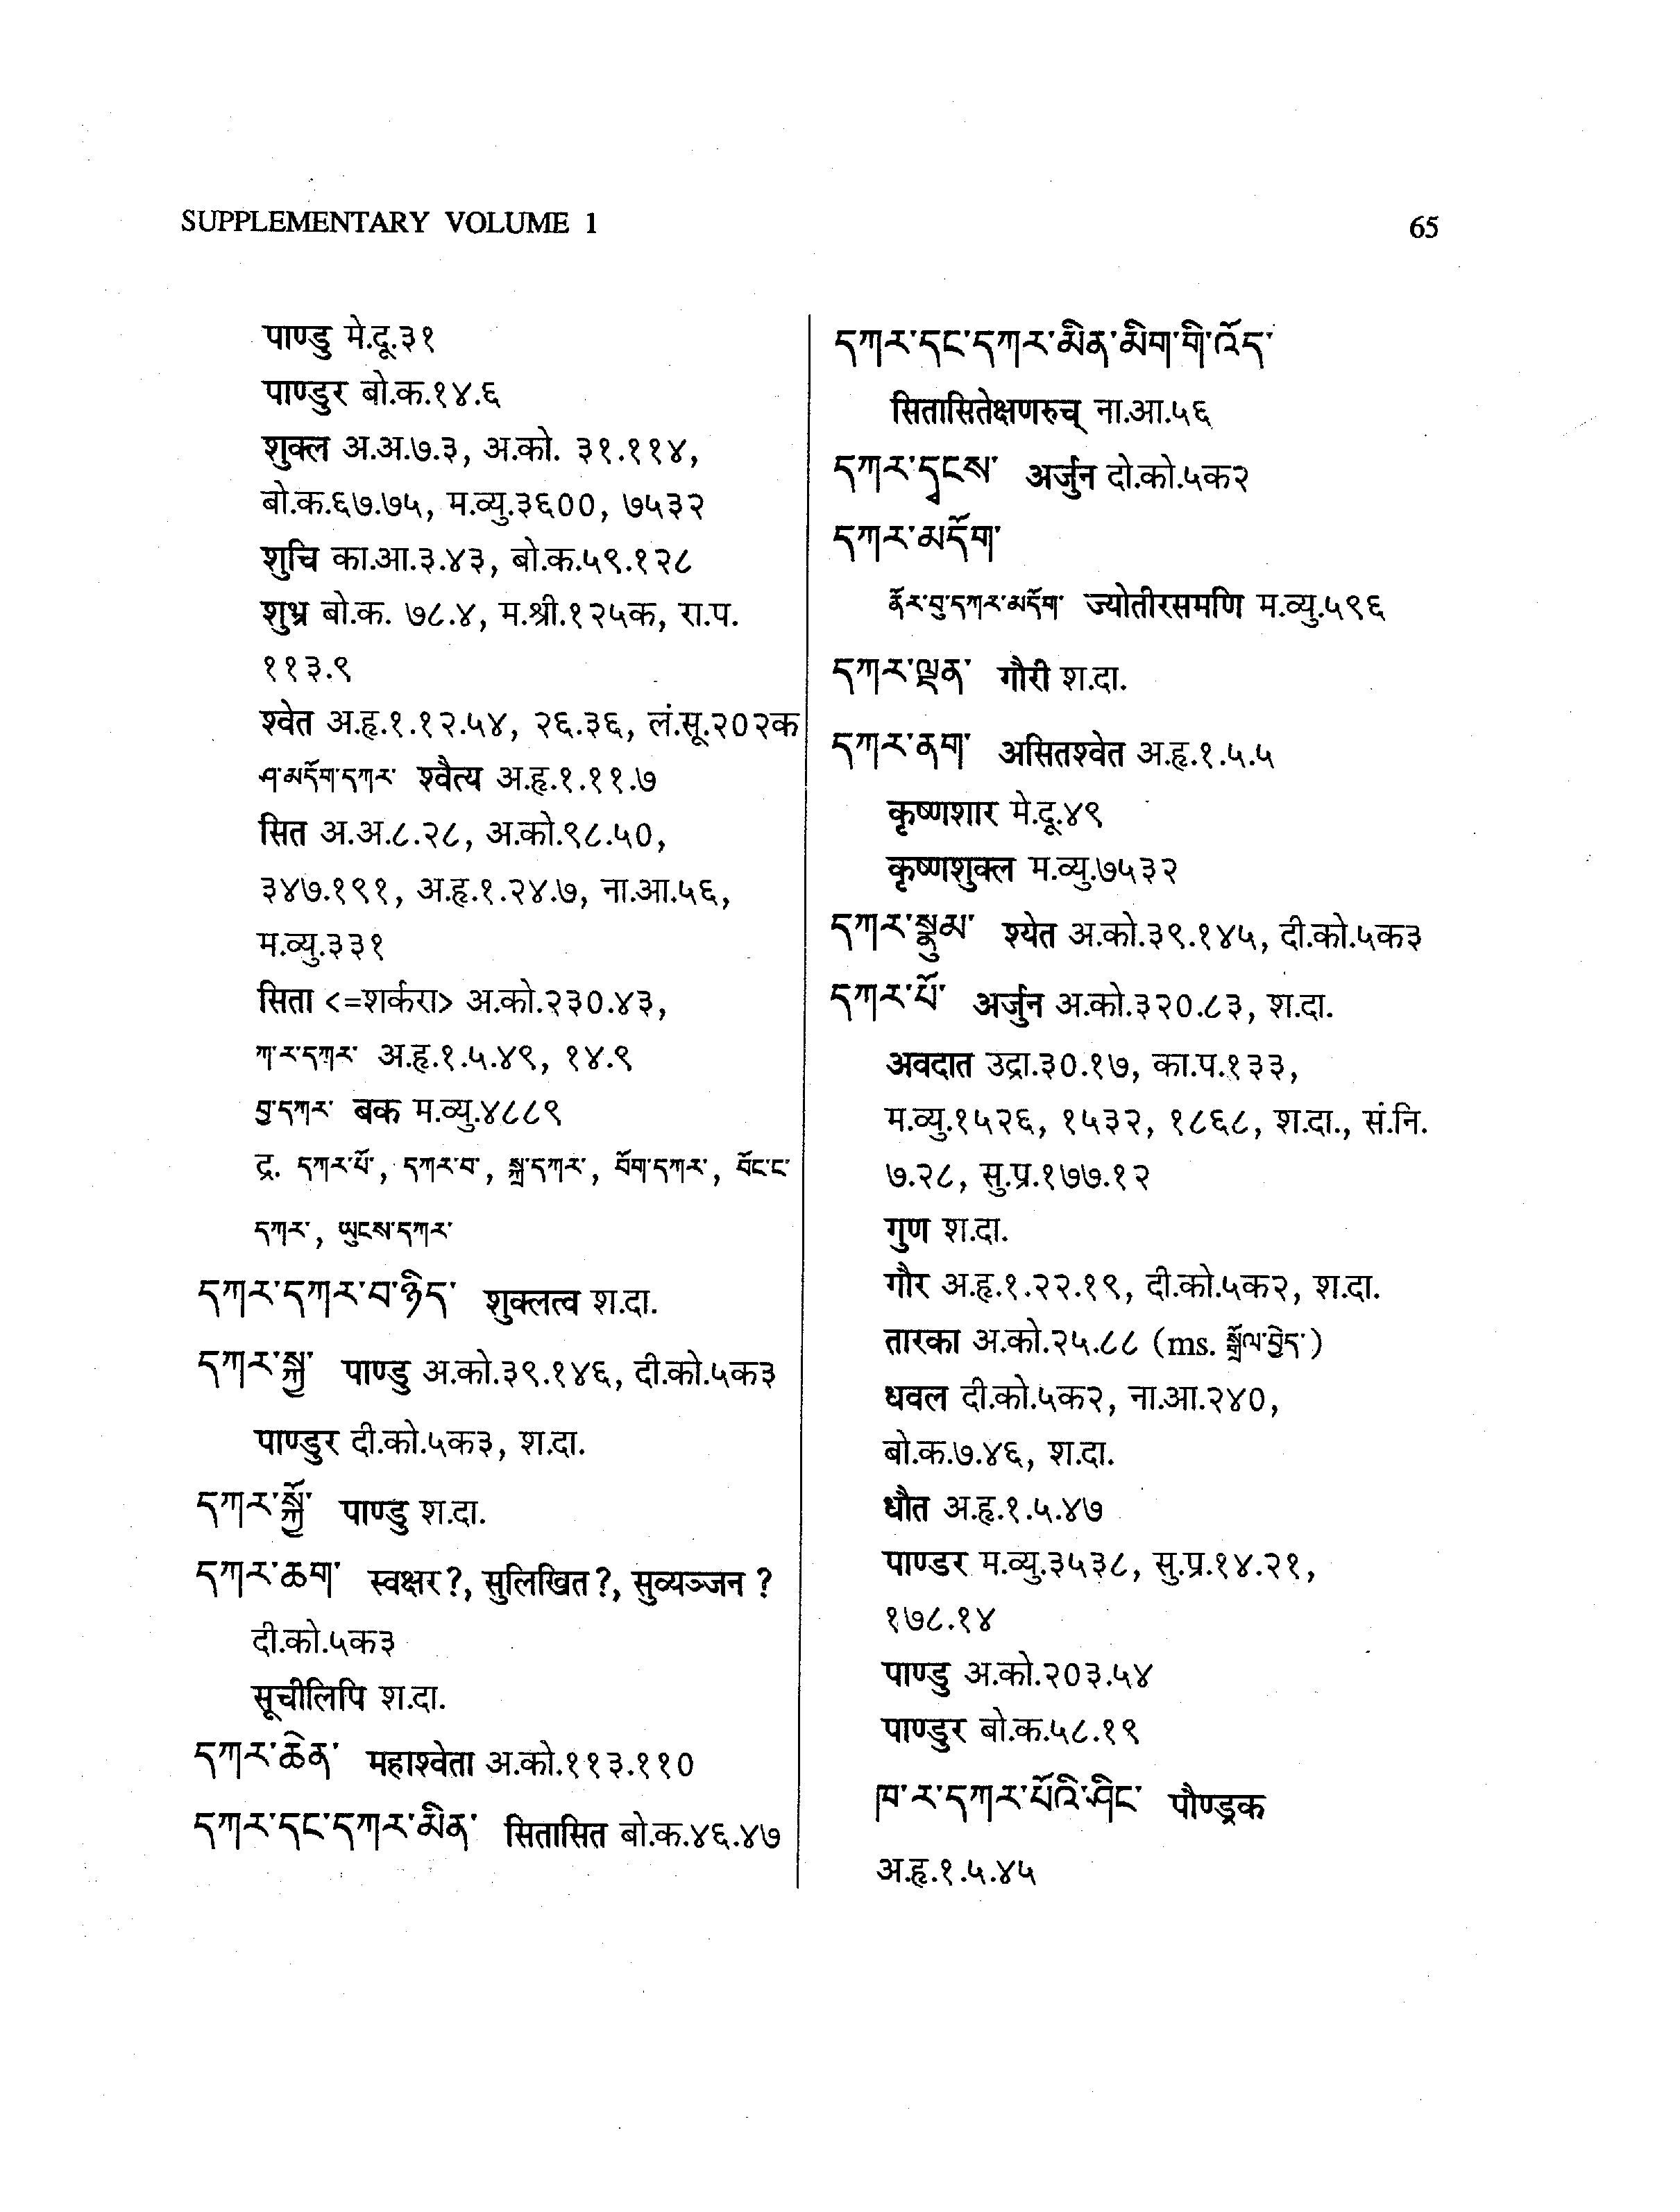 SUPPLEMENTARY VOLUME 1
65
पाण्डु मे.दू.३१
पाण्डुर बो.क.१४.६
शुक्ल अ.अ.७.३, अ.को. ३१.११४,
बो.क.६७.७५, म.व्यु.३६००, ७५३२
शुचि का.आ.३.४३, बो.क.५९.१२८
शुभ्र बो.क. ७८.४, म.श्री.१२५क, रा.प.
११३.९
श्वेत अ.हृ.१.१२.५४, २६.३६, लं.सू.२०२क
ཤ་མདོག་དཀར་ श्वैत्य अ.हृ.१.११.७
सित अ.अ.८.२८, अ.को.९८.५०,
३४७.१९१, अ.हृ.१.२४.७, ना.आ.५६,
म.व्यु.३३१
सिता <=शर्करा> अ.को.२३०.४३,
ཀ་ར་དཀར་ अ.हृ.१.५.४९, १४.९
བྱ་དཀར་ बक म.व्यु.४८८९
द्र. དཀར་པོ་, དཀར་བ་, སྐྲ་དཀར་, བོག་དཀར་, བོང་ང་
དཀར་, ཡུངས་དཀར་
དཀར་དཀར་བ་ཉིད་ शुक्लत्व श.दा.
དཀར་སྐྱ་ पाण्डु अ.को.३९.१४६, दी.को.५क३
पाण्डुर दी.को.५क३, श.दा.
དཀར་སྐྱོ་ पाण्डु श.दा.
དཀར་ཆག་ स्वक्षर?, सुलिखित?, सुव्यञ्जन ?
दी.को.५क३
सूचीलिपि श.दा.
དཀར་ཆེན་ महाश्वेता अ.को.११३.११०
དཀར་དང་དཀར་མིན་ सितासित बो.क.४६.४७
དཀར་དང་དཀར་མིན་མིག་གི་འོད་
सितासितेक्षणरुच् ना.आ.५६
དཀར་དྭངས་ अर्जुन दो.को.५क२
དཀར་མདོག་
ནོར་བུ་དཀར་མདོག་ ज्योतीरसमणि म.व्यु.५९६
དཀར་ལྡན་ गौरी श.दा.
དཀར་ནག་ असितश्वेत अ.हृ.१.५.५
कृष्णशार मे.दू.४९
कृष्णशुक्ल म.व्यु.७५३२
དཀར་སྣུམ་ श्येत अ.को.३९.१४५, दी.को.५क३
དཀར་པོ་ अर्जुन अ.को.३२०.८३, श.दा.
अवदात उद्रा.३०.१७, का.प.१३३,
म.व्यु.१५२६, १५३२, १८६८, श.दा., सं.नि.
७.२८, सु.प्र.१७७.१२
गुण श.दा.
गौर अ.हृ.१.२२.१९, दी.को.५क२, श.दा.
तारका अ.को.२५.८८ (ms. སྒྲོལ་བྱེད་)
धवल दी.को.५क२, ना.आ.२४०,
बो.क.७.४६, श.दा.
धौत अ.हृ.१.५.४७
पाण्डर म.व्यु.३५३८, सु.प्र.१४.२१,
१७८.१४
पाण्डु अ.को.२०३.५४
पाण्डुर बो.क.५८.१९
ཁ་ར་དཀར་པོའི་ཤིང་ पौण्ड्रक
अ.हृ.१.५.४५